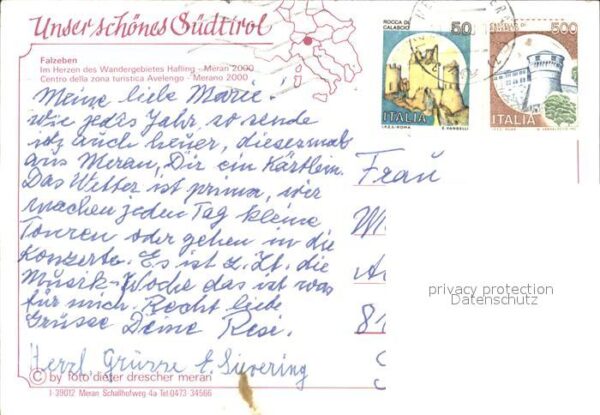 Unser schönes Südtirol
Falzeben
Im Herzen des Wandergebietes Hafling - Meran 2000
Centro della zona turistica Avelengo - Merano 2000
ROCCA DI
CALASCIO
50
ITALIA
I.P.Z.S.-ROMA E. VANGELLI
500
ITALIA
Meine liebe Marie!
Wie jedes Jahr, so sende
ich auch heuer, diesesmal
aus Meran, Dir ein Kärtlein.
Das Wetter ist prima, wir
machen jeden Tag kleine
Touren oder gehen in die
Konzerte. Es ist z. Zt. die
Musik-Woche das ist was
für mich. Recht liebe
Grüsse Deine Resi.
Herzl. Grüsse E. Sievering
Frau
M
A
81
privacy protection
Datenschutz
© by foto dieter drescher meran
I-39012 Meran Schallhofweg 4a Tel.0473 34566